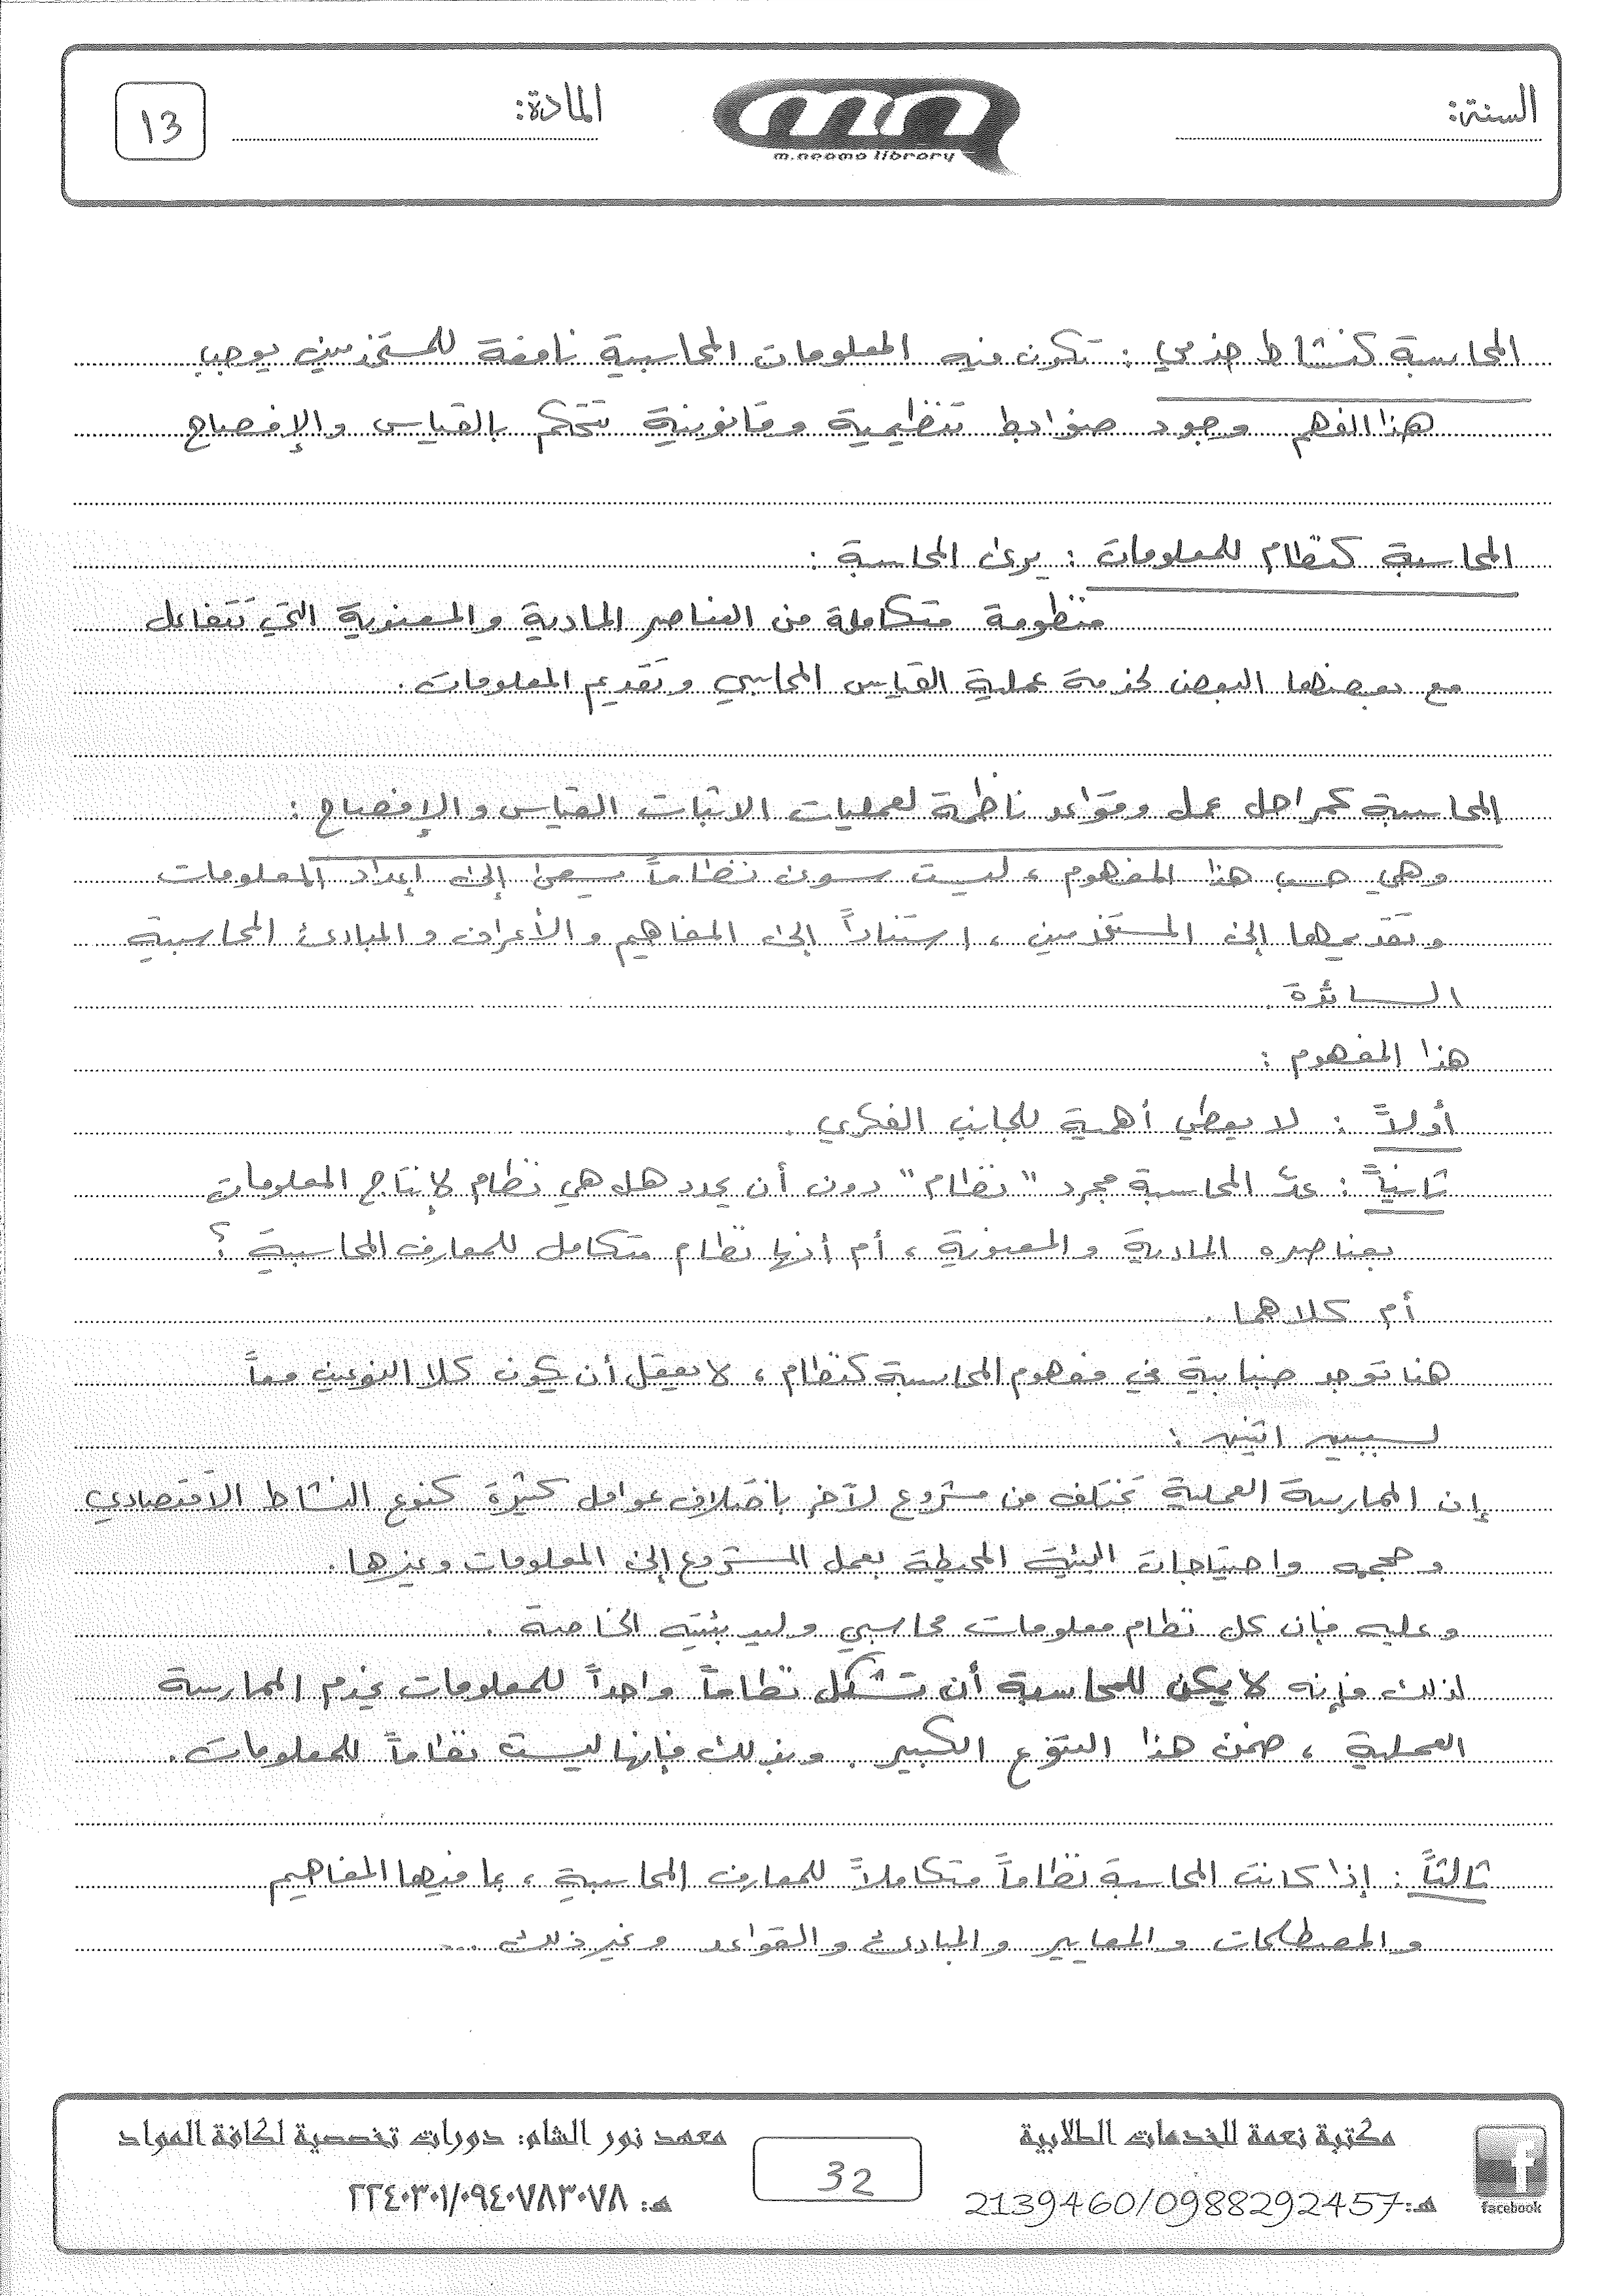 السنة:
m.neama library
المادة:
13
المحاسبة كنشاط خدمي : تكون فيه المعلومات المحاسبية نافعة للمستخدمين يوجب
هذا الفهم وجود ضوابط تنظيمية وقانونية تتحكم بالقياس والإفصاح
المحاسبة كنظام للمعلومات : يرى المحاسبة :
منظومة متكاملة من العناصر المادية والمعنوية التي تتفاعل
مع بعضها البعض لخدمة عملية القياس المحاسبي وتقديم المعلومات .
المحاسبة كمراحل عمل وقواعد ناظمة لعمليات الاثبات القياس والإفصاح :
وهي حسب هذا المفهوم ، ليست سوى نظاماً يسعى إلى إعداد المعلومات
وتقديمها إلى المستخدمين ، استناداً إلى المفاهيم والأعراف والمبادئ المحاسبية
السائدة .
هذا المفهوم :
أولاً : لا يعطي أهمية للجانب الفكري .
ثانياً : عدّ المحاسبة مجرد "نظام" دون أن يحدد هل هي نظام لإنتاج المعلومات
بعناصره المادية والمعنوية ، أم أنها نظام متكامل للمعارف المحاسبية ؟
أم كلاهما .
هنا توجد ضبابية في مفهوم المحاسبة كنظام ، لا يعقل أن يكون كلا النوعين معاً
لسببين اثنين :
إن الممارسة العملية تختلف من مشروع لآخر باختلاف عوامل كثيرة كنوع النشاط الاقتصادي
وحجمه واحتياجات البيئة المحيطة بعمل المشروع إلى المعلومات وغيرها .
وعليه فإن كل نظام معلومات محاسبي وليد بيئته الخاصة .
لذلك فإنه لا يمكن للمحاسبة أن تشكل نظاماً واحداً للمعلومات يخدم الممارسة
العملية ، ضمن هذا التنوع الكبير . وبذلك فإنها ليست نظاماً للمعلومات .
ثالثاً : إذا كانت المحاسبة نظاماً متكاملاً للمعارف المحاسبية ، بما فيها المفاهيم
والمصطلحات والمعايير والمبادئ والقواعد وغير ذلك ...
facebook
مكتبة نعمة للخدمات الطلابية
هـ: 2139460/0988292457
32
معهد نور الشام: دورات تخصصية لكافة المواد
هـ: ٢٢٤٠٣٠١/٠٩٤٠٧٨٣٠٧٨